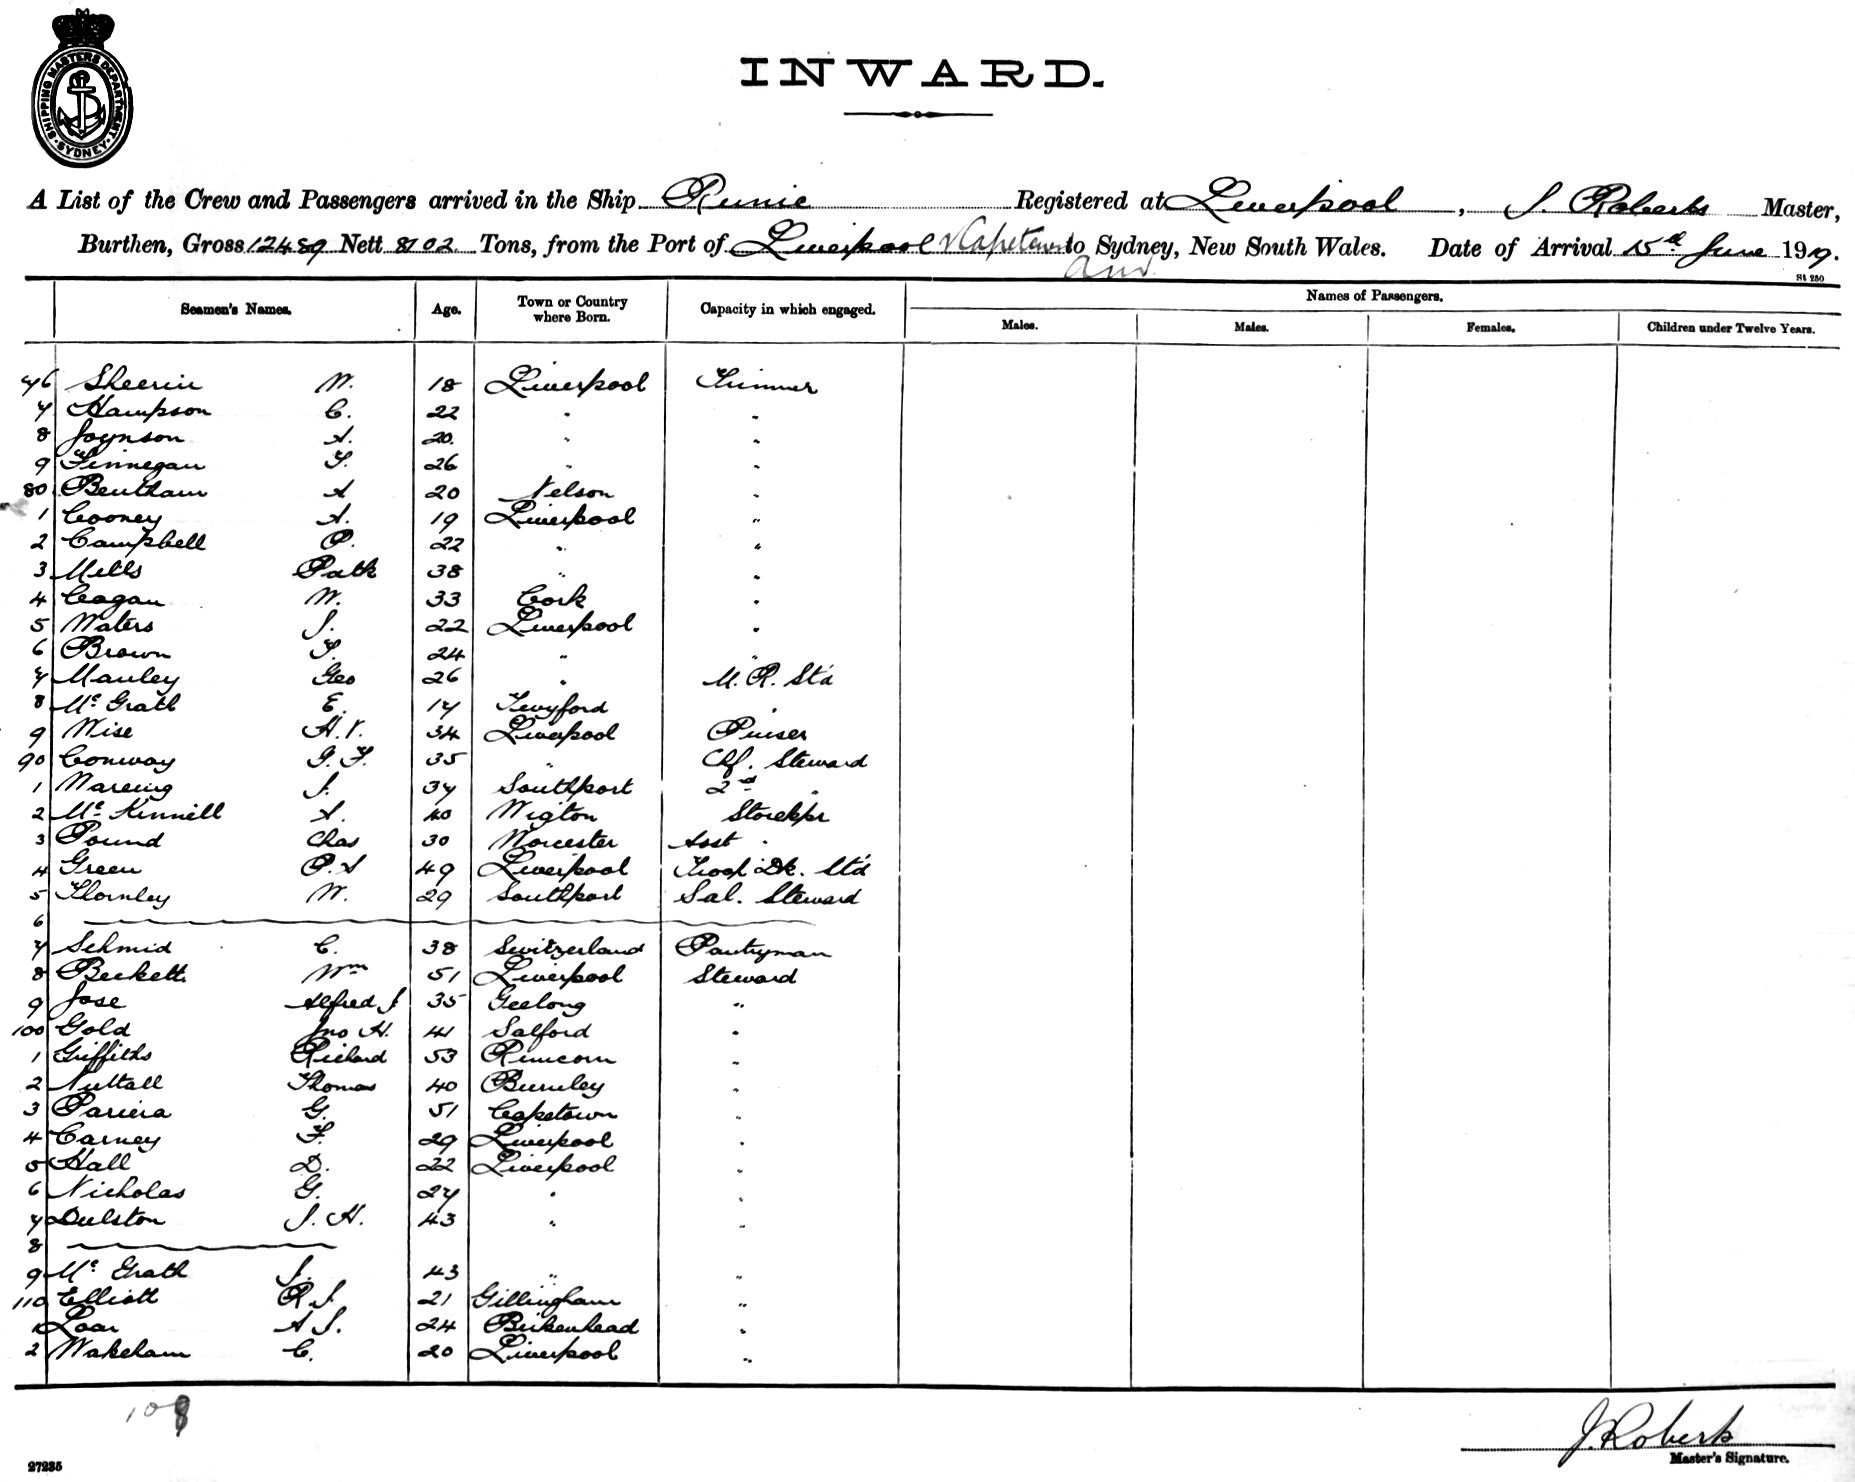 SHIPPING MASTERS DEPARTMENT
SYDNEY
INWARD.
A List of the Crew and Passengers arrived in the Ship Runic Registered at Liverpool, J. Roberts Master,
Burthen, Gross 12489 Nett 8102 Tons, from the Port of Liverpool & Capetown to Sydney, New South Wales. Date of Arrival 15th June 1919.
St 250
Seamen's Names. Age. Town or Country where Born. Capacity in which engaged. Names of Passengers.
Males. Males. Females. Children under Twelve Years.
76 Sheerin W. 18 Liverpool Trimmer
7 Hampson C. 22 " "
8 Joynson A. 20 " "
9 Finnegan T. 26 " "
80 Bentham A 20 Nelson "
1 Cooney A. 19 Liverpool "
2 Campbell P. 22 " "
3 Mills Patk 38 " "
4 Cogan W. 33 Cork "
5 Waters J. 22 Liverpool "
6 Brown T. 24 " "
7 Manley Geo 26 " M. R. Std
8 McGrath E. 17 Twyford "
9 Wise H.V. 34 Liverpool Purser
90 Conway G.F. 35 " Chf. Steward
1 Wareing J. 37 Southport 2nd "
2 McKinnell A. 40 Wigton Storekpr
3 Pound Chas 30 Worcester Asst "
4 Green P.A 49 Liverpool Troop Dk. Std
5 Thornley W. 29 Southport Sal. Steward
6
7 Schmid C. 38 Switzerland Pantryman
8 Beckett Wm 51 Liverpool Steward
9 Jose Alfred J 35 Geelong "
100 Gold Jno H. 41 Salford "
1 Griffiths Richard 53 Runcorn "
2 Nuttall Thomas 40 Burnley "
3 Pariera G. 51 Capetown "
4 Carney F. 29 Liverpool "
5 Hall D. 22 Liverpool "
6 Nicholas G. 27 " "
7 Dulston J. H. 43 " "
8
9 McGrath J. 43 " "
110 Elliott R J. 21 Gillingham "
1 Loar A J. 24 Birkenhead "
2 Wakeham C. 20 Liverpool "
108
J. Roberts
Master's Signature.
27235